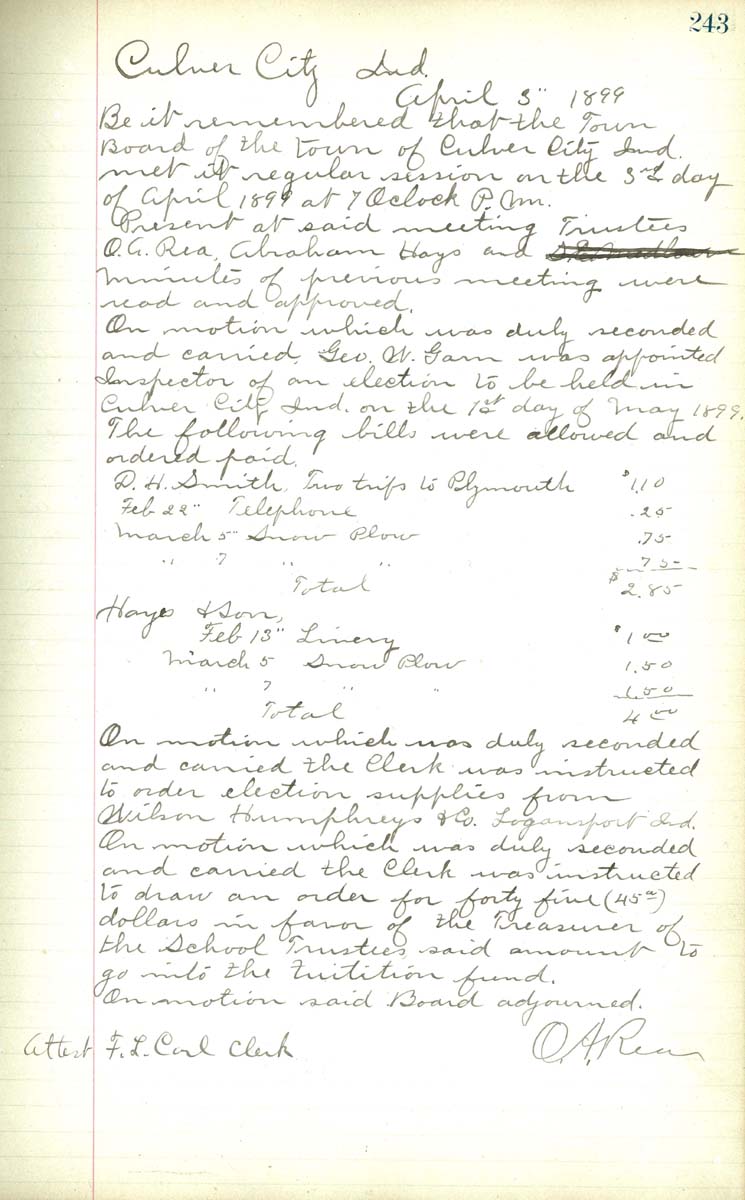 243
Culver City Ind.
April 3" 1899
Be it remembered that the Town
Board of the town of Culver City Ind.
met it regular session on the 3rd day
of April 1899 at 7 Oclock P.M.
Present at said meeting Trustees
O.A. Rea, Abraham Hays and
Minutes of previous meeting were
read and approved.
On motion which was duly seconded
and carried, Geo. W. Garn was appointed
Inspector of an election to be held in
Culver City Ind. on the 1st day of May 1899.
The following bills were allowed and
ordered paid.
D. H. Smith, Two trips to Plymouth $1.10
Feb 22" Telephone .25
March 5" Snow Plow .75
" 7 " " .75
Total $2.85
Hayes & Son,
Feb 13" Livery $1 00
March 5 Snow Plow 1.50
" 7 " " 1.50
Total 4 00
On motion which was duly seconded
and carried the Clerk was instructed
to order election supplies from
Wilson Humphreys & Co. Logansport Ind.
On motion which was duly seconded
and carried the Clerk was instructed
to draw an order for forty five (45)
dollars in favor of the Treasurer of
the School Trustees said amount to
go into the tuitition fund.
On motion said Board adjourned.
O.A. Rea
Attest F. L. Carl Clerk